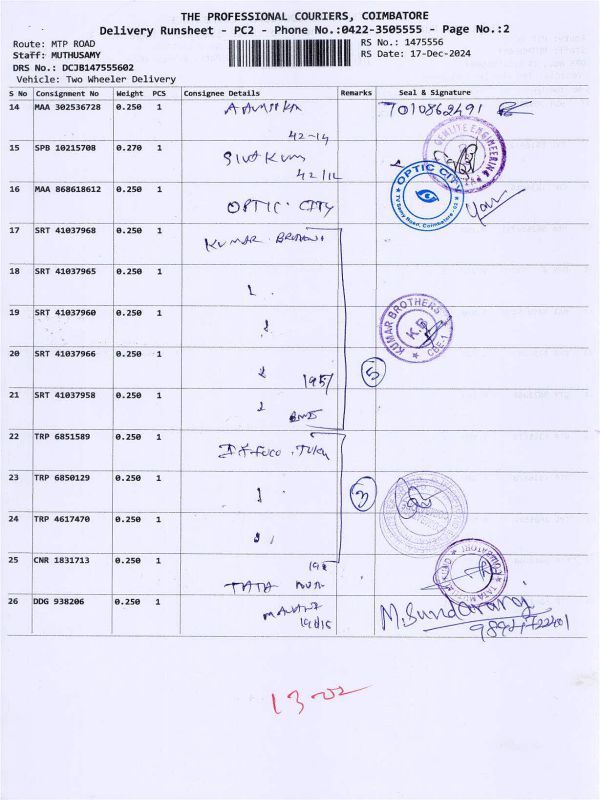 THE PROFESSIONAL COURIERS, COIMBATORE
Delivery Runsheet - PC2 - Phone No.:0422-3505555 - Page No.:2
Route: MTP ROAD
RS No.: 1475556
Staff: MUTHUSAMY
RS Date: 17-Dec-2024
DRS No.: DCJB147555602
Vehicle: Two Wheeler Delivery
S No Consignment No Weight PCS Consignee Details Remarks Seal & Signature
14 MAA 302536728 0.250 1 7010862491
42-14
15 SPB 10215708 0.270 1 Siva Kum
GEMLITE ENGINEERING
42/12
16 MAA 868618612 0.250 1 OPTIC CITY
OPTIC CITY
17 SRT 41037968 0.250 1 KUMAR Brothers
18 SRT 41037965 0.250 1
19 SRT 41037960 0.250 1
KUMAR BROTHERS
K.B
CBE-1
20 SRT 41037966 0.250 1
1957
5
21 SRT 41037958 0.250 1
22 TRP 6851589 0.250 1
23 TRP 6850129 0.250 1
3
24 TRP 4617470 0.250 1
25 CNR 1831713 0.250 1
TATA
26 DDG 938206 0.250 1
M. Sundararaj
13-02